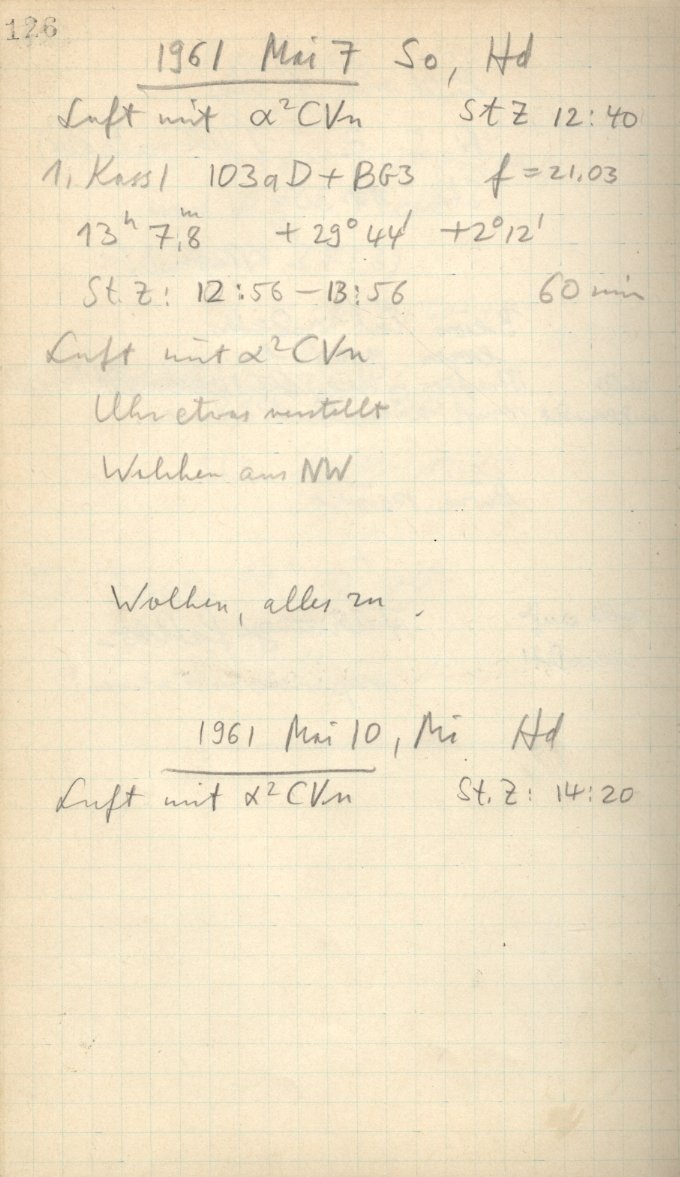 126
1961 Mai 7 So, Hd
Luft mit α²CVn St Z 12:40
1. Kass 1 103aD + BG3 f = 21,03
13ʰ 7,8ᵐ + 29° 44' + 2° 12'
St. Z: 12:56 — 13:56 60 min
Luft mit α²CVn
Uhr etwas verstellt
Wolken aus NW
Wolken, alles zu.
1961 Mai 10, Mi Hd
Luft mit α²CVn St. Z: 14:20